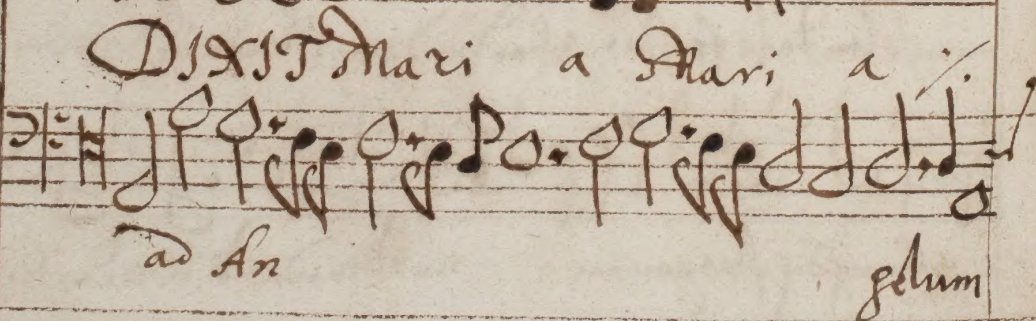 DIXIT Maria Maria ·/.
ad Angelum